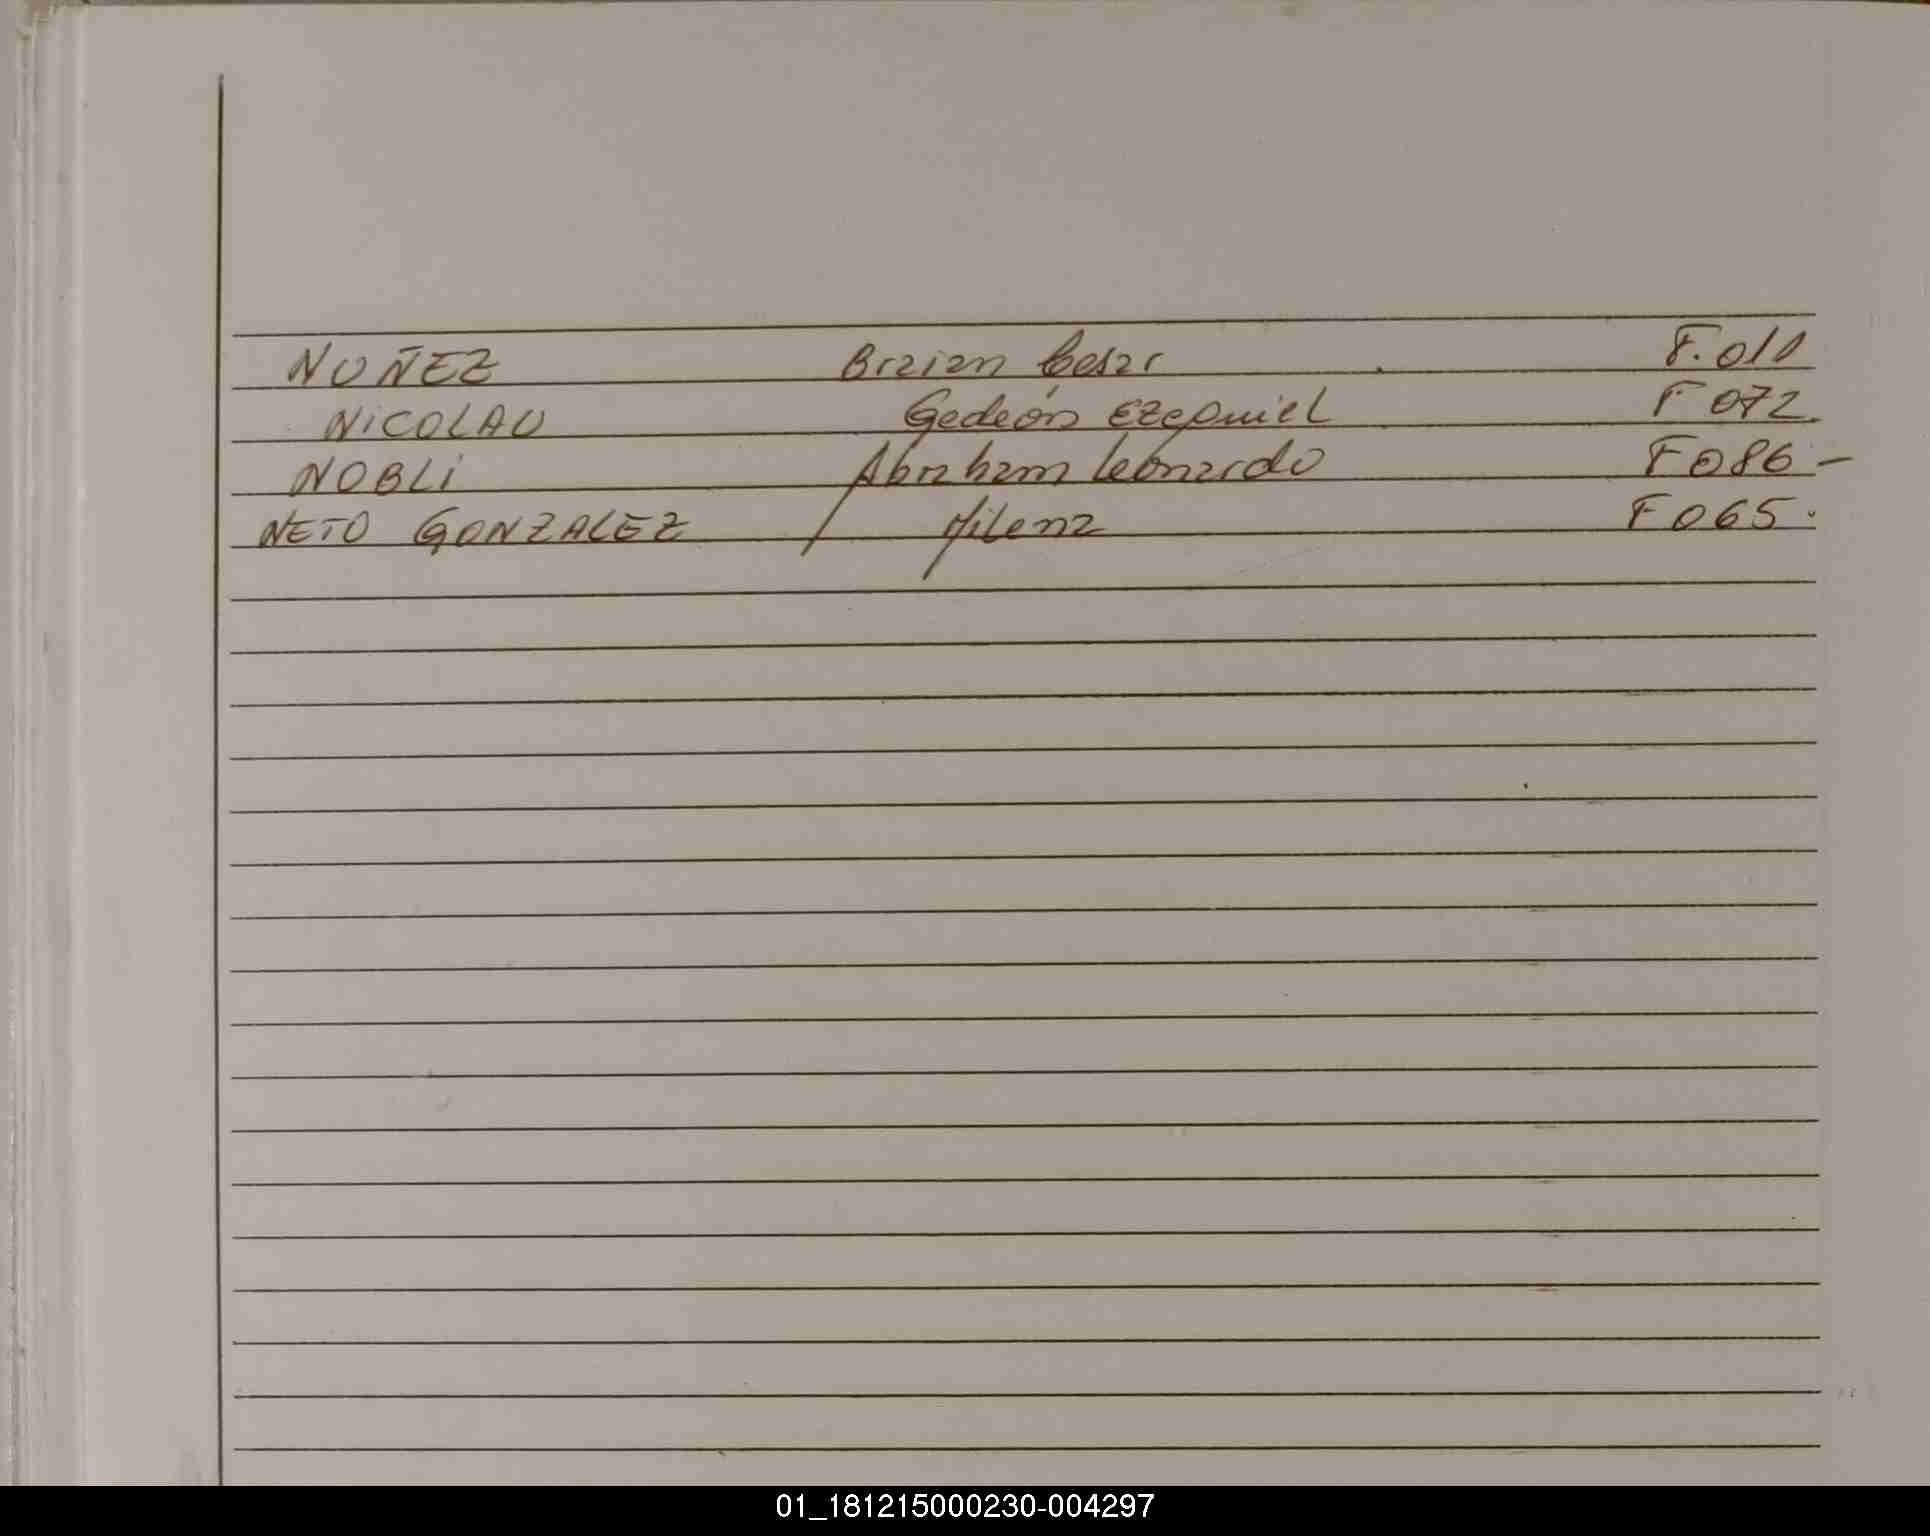 NUÑEZ Braian Cesar F.011
NICOLAU Gedeón Ezequiel F 072
NOBLI Abraham Leonardo F 086 -
NETO GONZALEZ Milena F 065.
01_181215000230-004297